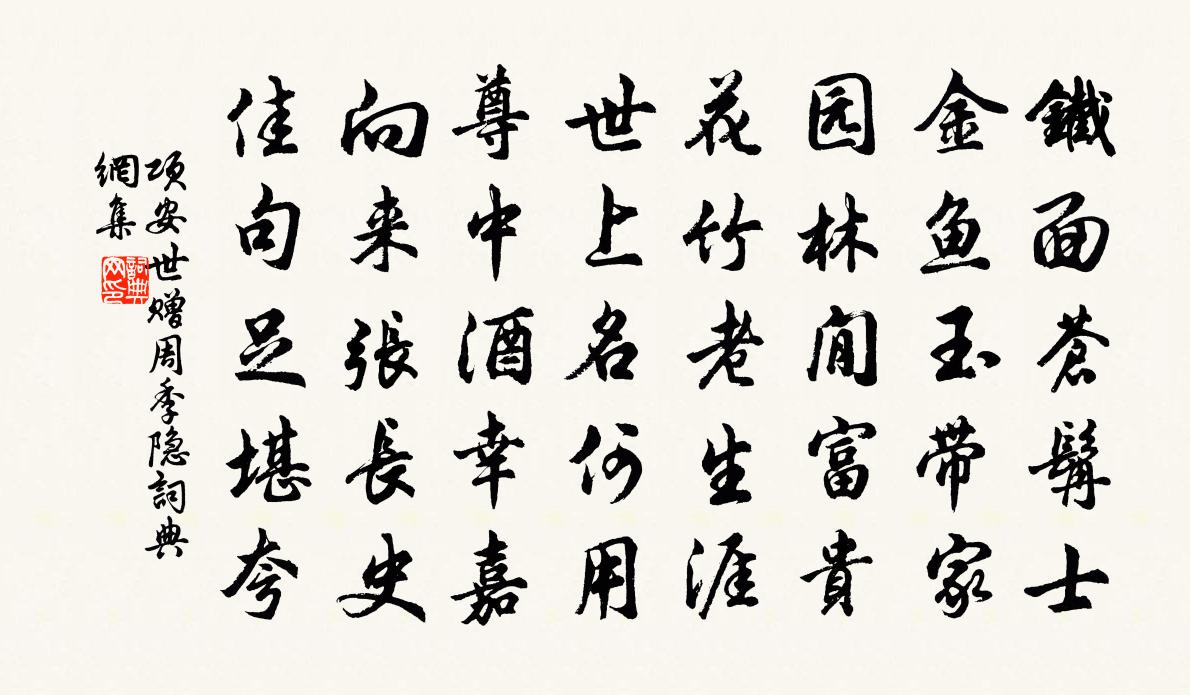 鐵面蒼髯士
金鱼玉带家
园林间富貴
花竹老生涯
世上名何用
尊中酒幸嘉
向来張長史
佳句足堪夸
项安世赠周季隐詞典
網集
詞典
网印